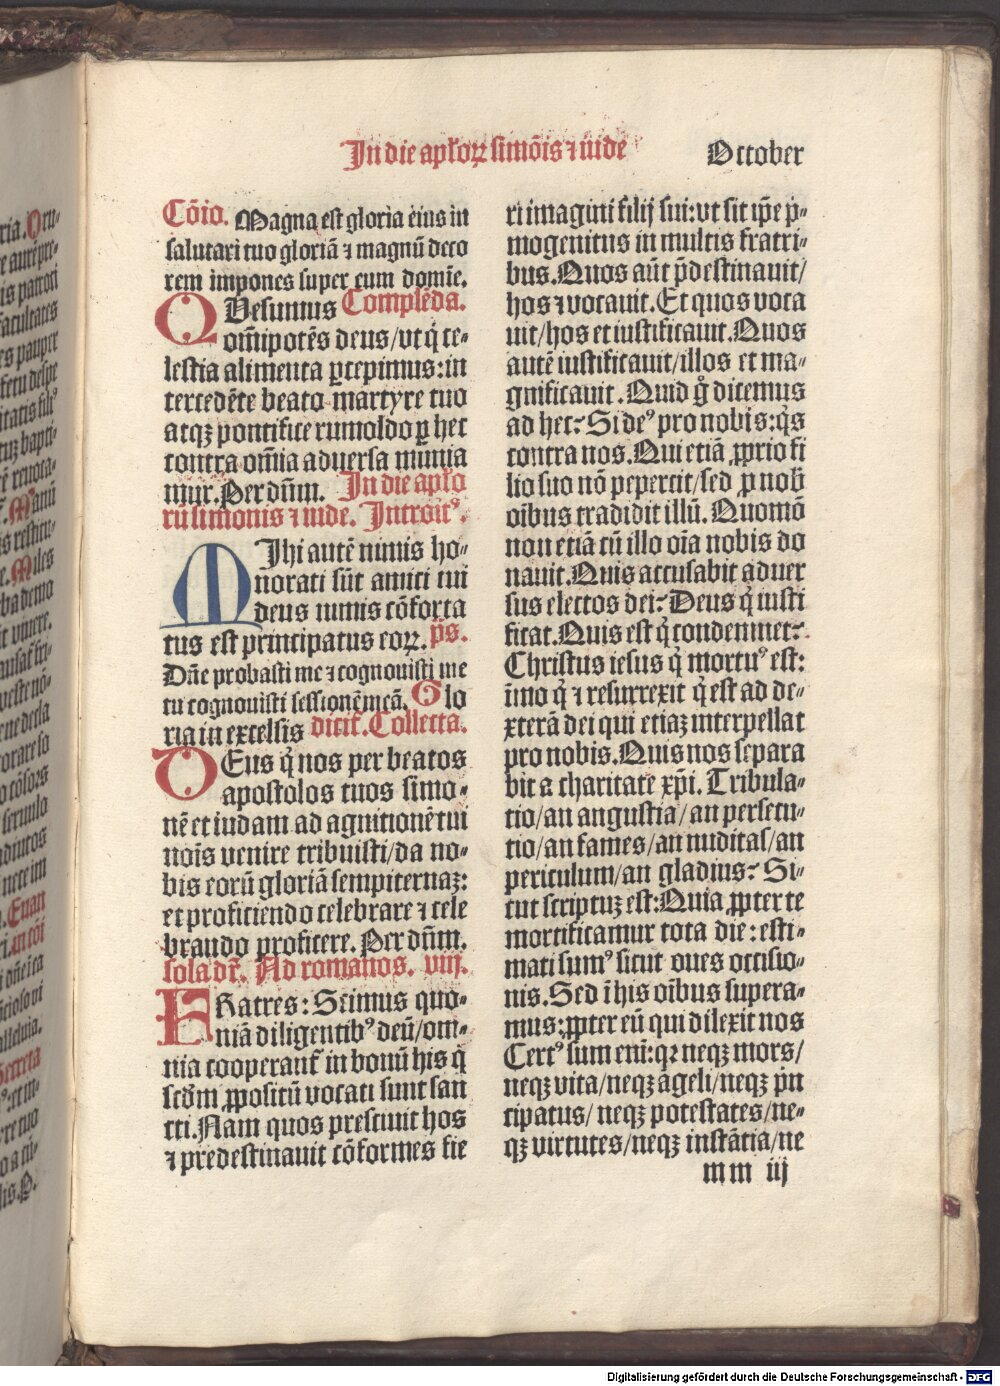 In die apl'oꝝ simōis ⁊ iude
October
Cōio. Magna est gloria eius in
salutari tuo gloriā ⁊ magnū deco
rem impones super eum domīe.
QVesumus Complēda.
om̄ipotēs deus/vt q̇ ce⸗
lestia alimenta ꝑcepimus:in
tercedēte beato martyre tuo
atqꝫ pontifice rumoldo ꝑ hec
contra om̄ia aduersa munia
mur.Per dūm. In die apl'o
rū simonis ⁊ iude. Introit⁹.
MIhi autē nimis ho⸗
norati sūt amici tui
deus nimis cōforta
tus est principatus eoꝝ. p̄s.
Dn̄e probasti me ⁊ cognouisti me
tu cognouisti sessionē meā. Glo
ria in excelsis dicit͛. Collecta.
DEus q̇ nos per beatos
apostolos tuos simo⸗
nē et iudam ad agnitionē tui
noīs venire tribuisti/da no⸗
bis eorū gloriā sempiternaꝫ:
et proficiendo celebrare ⁊ cele
brando proficere. Per dūm.
sola dr̄. Ad romanos. viij.
FRatres: Scimus quo⸗
niā diligentib⁹ deū/om⸗
nia cooperant͛ in bonū his q̇
scdm̄ ꝓpositū vocati sunt san
cti.Nam quos presciuit hos
⁊ predestinauit cōformes fie
ri imagini filij sui:vt sit ip̄e ṗ⸗
mogenitus in multis fratri⸗
bus.Quos aūt p̄destinauit/
hos ⁊ vocauit.Et quos voca
uit/hos et iustificauit.Quos
autē iustificauit/illos et ma⸗
gnificauit.Quid g̊ dicemus
ad hec? Si de⁹ pro nobis:q̇s
contra nos.Qui etiā ꝓprio fi
lio suo nō pepercit/sed ꝓ nob̄
oībus tradidit illū. Quomō
non etiā cū illo oīa nobis do
nauit.Quis accusabit aduer
sus electos dei? Deus q̇ iusti
ficat.Quis est q̇ condemnet?
Christus iesus q̇ mortu⁹ est:
īmo q̇ ⁊ resurrexit q̇ est ad de⸗
xterā dei qui etiaꝫ interpellat
pro nobis.Quis nos separa
bit a charitate xp̄i. Tribula⸗
tio/an angustia/an persecu⸗
tio/an fames/an nuditas/an
periculum/an gladius? Si⸗
cut scriptuꝫ est:Quia ꝓpter te
mortificamur tota die:esti⸗
mati sum⁹ sicut oues occisio⸗
nis.Sed ī his oībus supera⸗
mus:ꝓpter eū qui dilexit nos
Cert⁹ sum enī:qꝛ neqꝫ mors/
neqꝫ vita/neqꝫ āgeli/neqꝫ ṗn
cipatus/ neqꝫ potestates/ne⸗
qꝫ virtutes/neqꝫ instātia/ne
mm iij
Digitalisierung gefördert durch die Deutsche Forschungsgemeinschaft - DFG